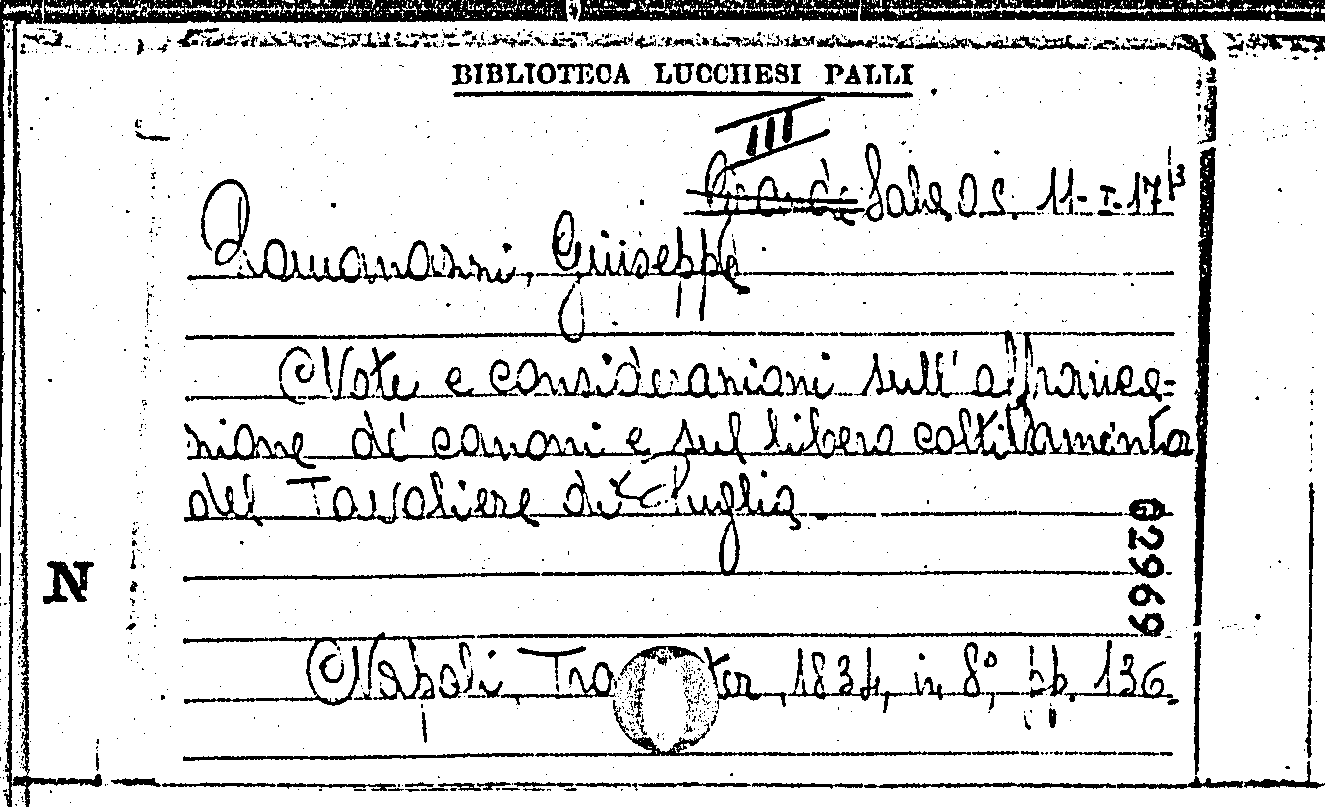 BIBLIOTECA LUCCHESI PALLI
III
Grande Sala O S. 11-I-17
Romanazzi, Giuseppe
Note e considerazioni sull'affranca=
zione de' canoni e sul libero coltivamento
del Tavoliere di Puglia.
02969
N
Napoli, Tra ter, 1834, in 8°, pp. 136.